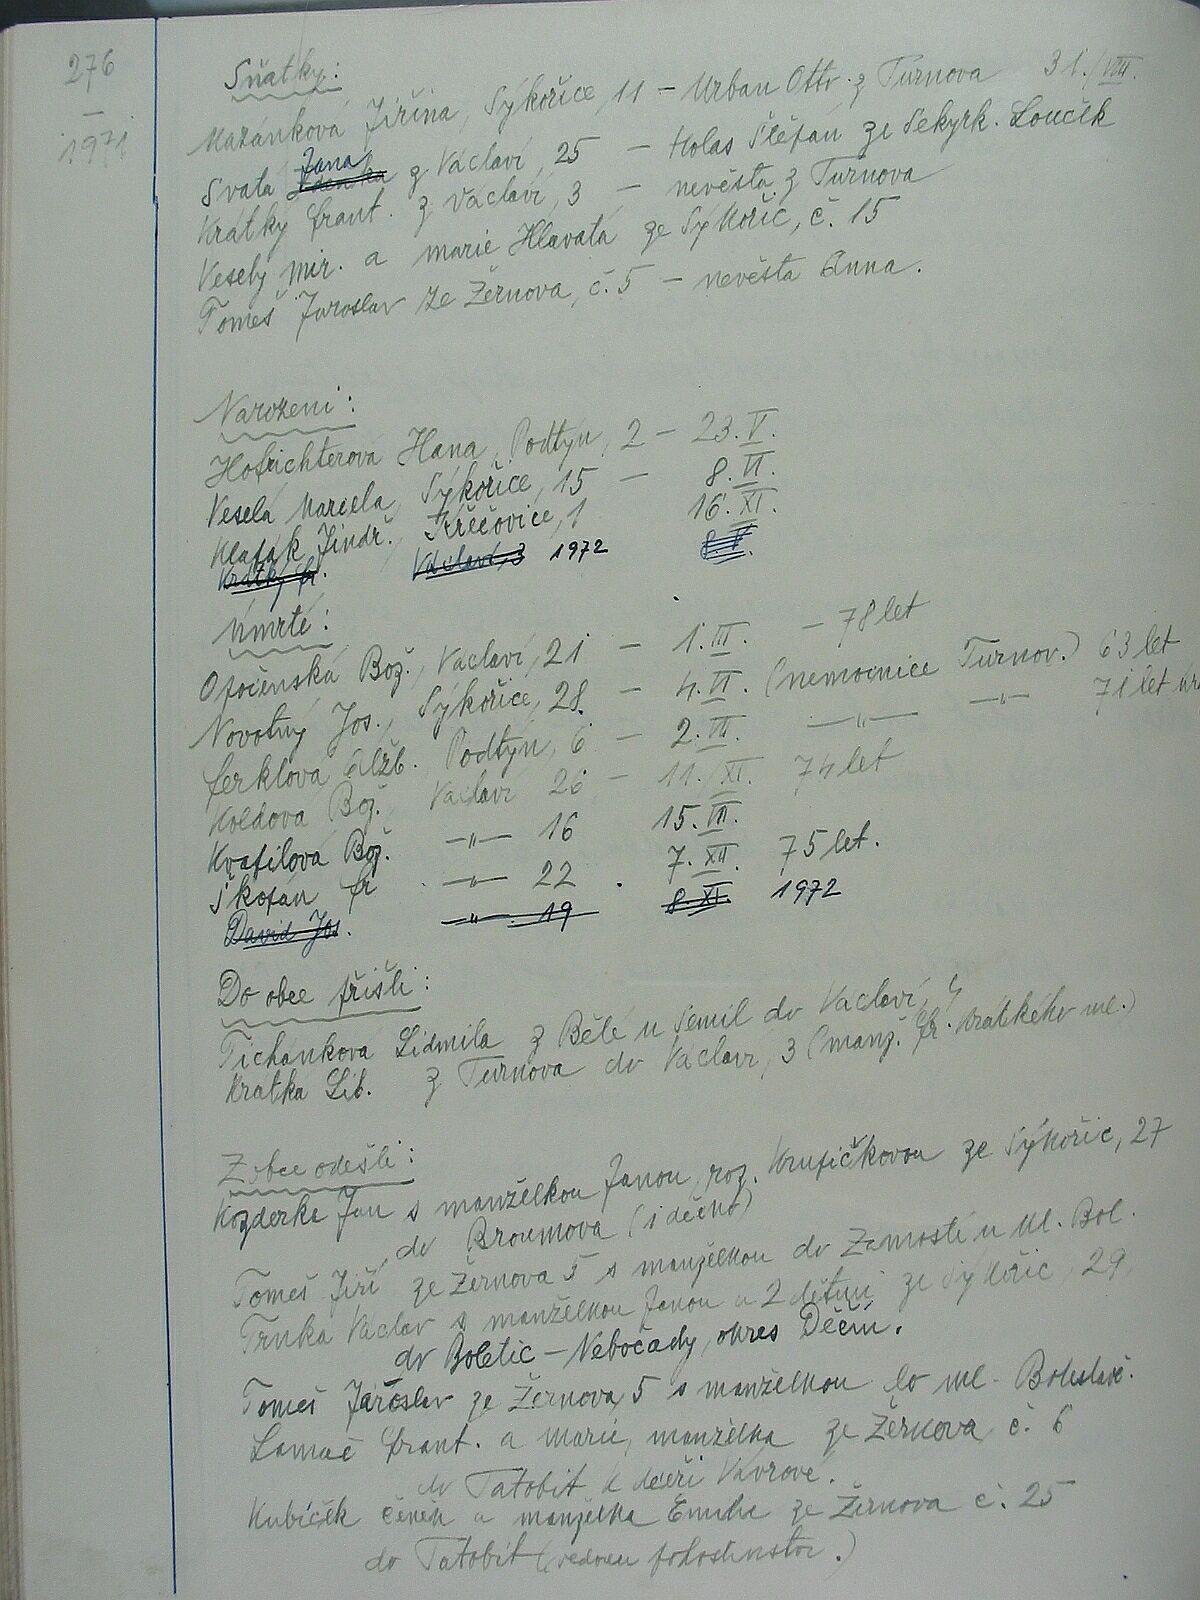 276
—
1971
Sňatky:
Mařánková Jiřina, Sýkořice, 11 – Urban Otto z Turnova 31./VIII.
Svatá Zdenka Jana z Václaví, 25 – Holas Štěpán ze Sekyrk. Louček
Krátký Frant. z Václaví, 3 – nevěsta z Turnova
Veselý Mir. a Marie Hlavatá ze Sýkořic, č. 15
Tomeš Jaroslav ze Žernova, č. 5 – nevěsta Anna.
Narození:
Hofrichterová Hana, Podtýn, 2 – 23. V.
Veselá Marcela, Sýkořice, 15 – 8. VI.
Klapák Jindř., Křečovice, 1 16. XI.
Krátký fr. Václaví, 3 1972 8. V.
Úmrtí:
Otočenská Bož., Václaví, 21 – 1. III. – 78 let
Novotný Jos., Sýkořice, 28. – 4. VI. (nemocnice Turnov.) 63 let
Ferklová Alžb. Podtýn, 6 – 2. VII. —„— —„— 71 let
Koldová Bož., Václaví 26 – 11./XI. 74 let
Kvapilová Bož. —„— 16 15. VII.
Škopán fr. —„— 22. 7. XII. 75 let.
David Jos. —„— 19 8 XI 1972
Do obce přišli:
Tichánková Lidmila z Bělé u Semil do Václaví, 4
Krátká Lib. z Turnova do Václaví, 3 (manž. fr. Krátkého ml.)
Z obce odešli:
Kozderka Jan s manželkou Janou, roz. Krupičkovou ze Sýkořic, 27
do Broumova (1 děcko)
Tomeš Jiří ze Žernova 5 s manželkou do Zámostí u Ml. Bol.
Trnka Václav s manželkou Janou a 2 dětmi ze Sýkořic, 29,
do Boletic – Nebočady, okres Děčín.
Tomeš Jaroslav ze Žernova, 5 s manželkou do Ml. Boleslavě.
Lamač Frant. a Marie, manželka ze Žernova č. 6
do Tatobit k dceři Vávrové.
Kubíček Čeněk a manželka Emilie ze Žernova č. 25
do Tatobit (vedoucí pohostinství.)